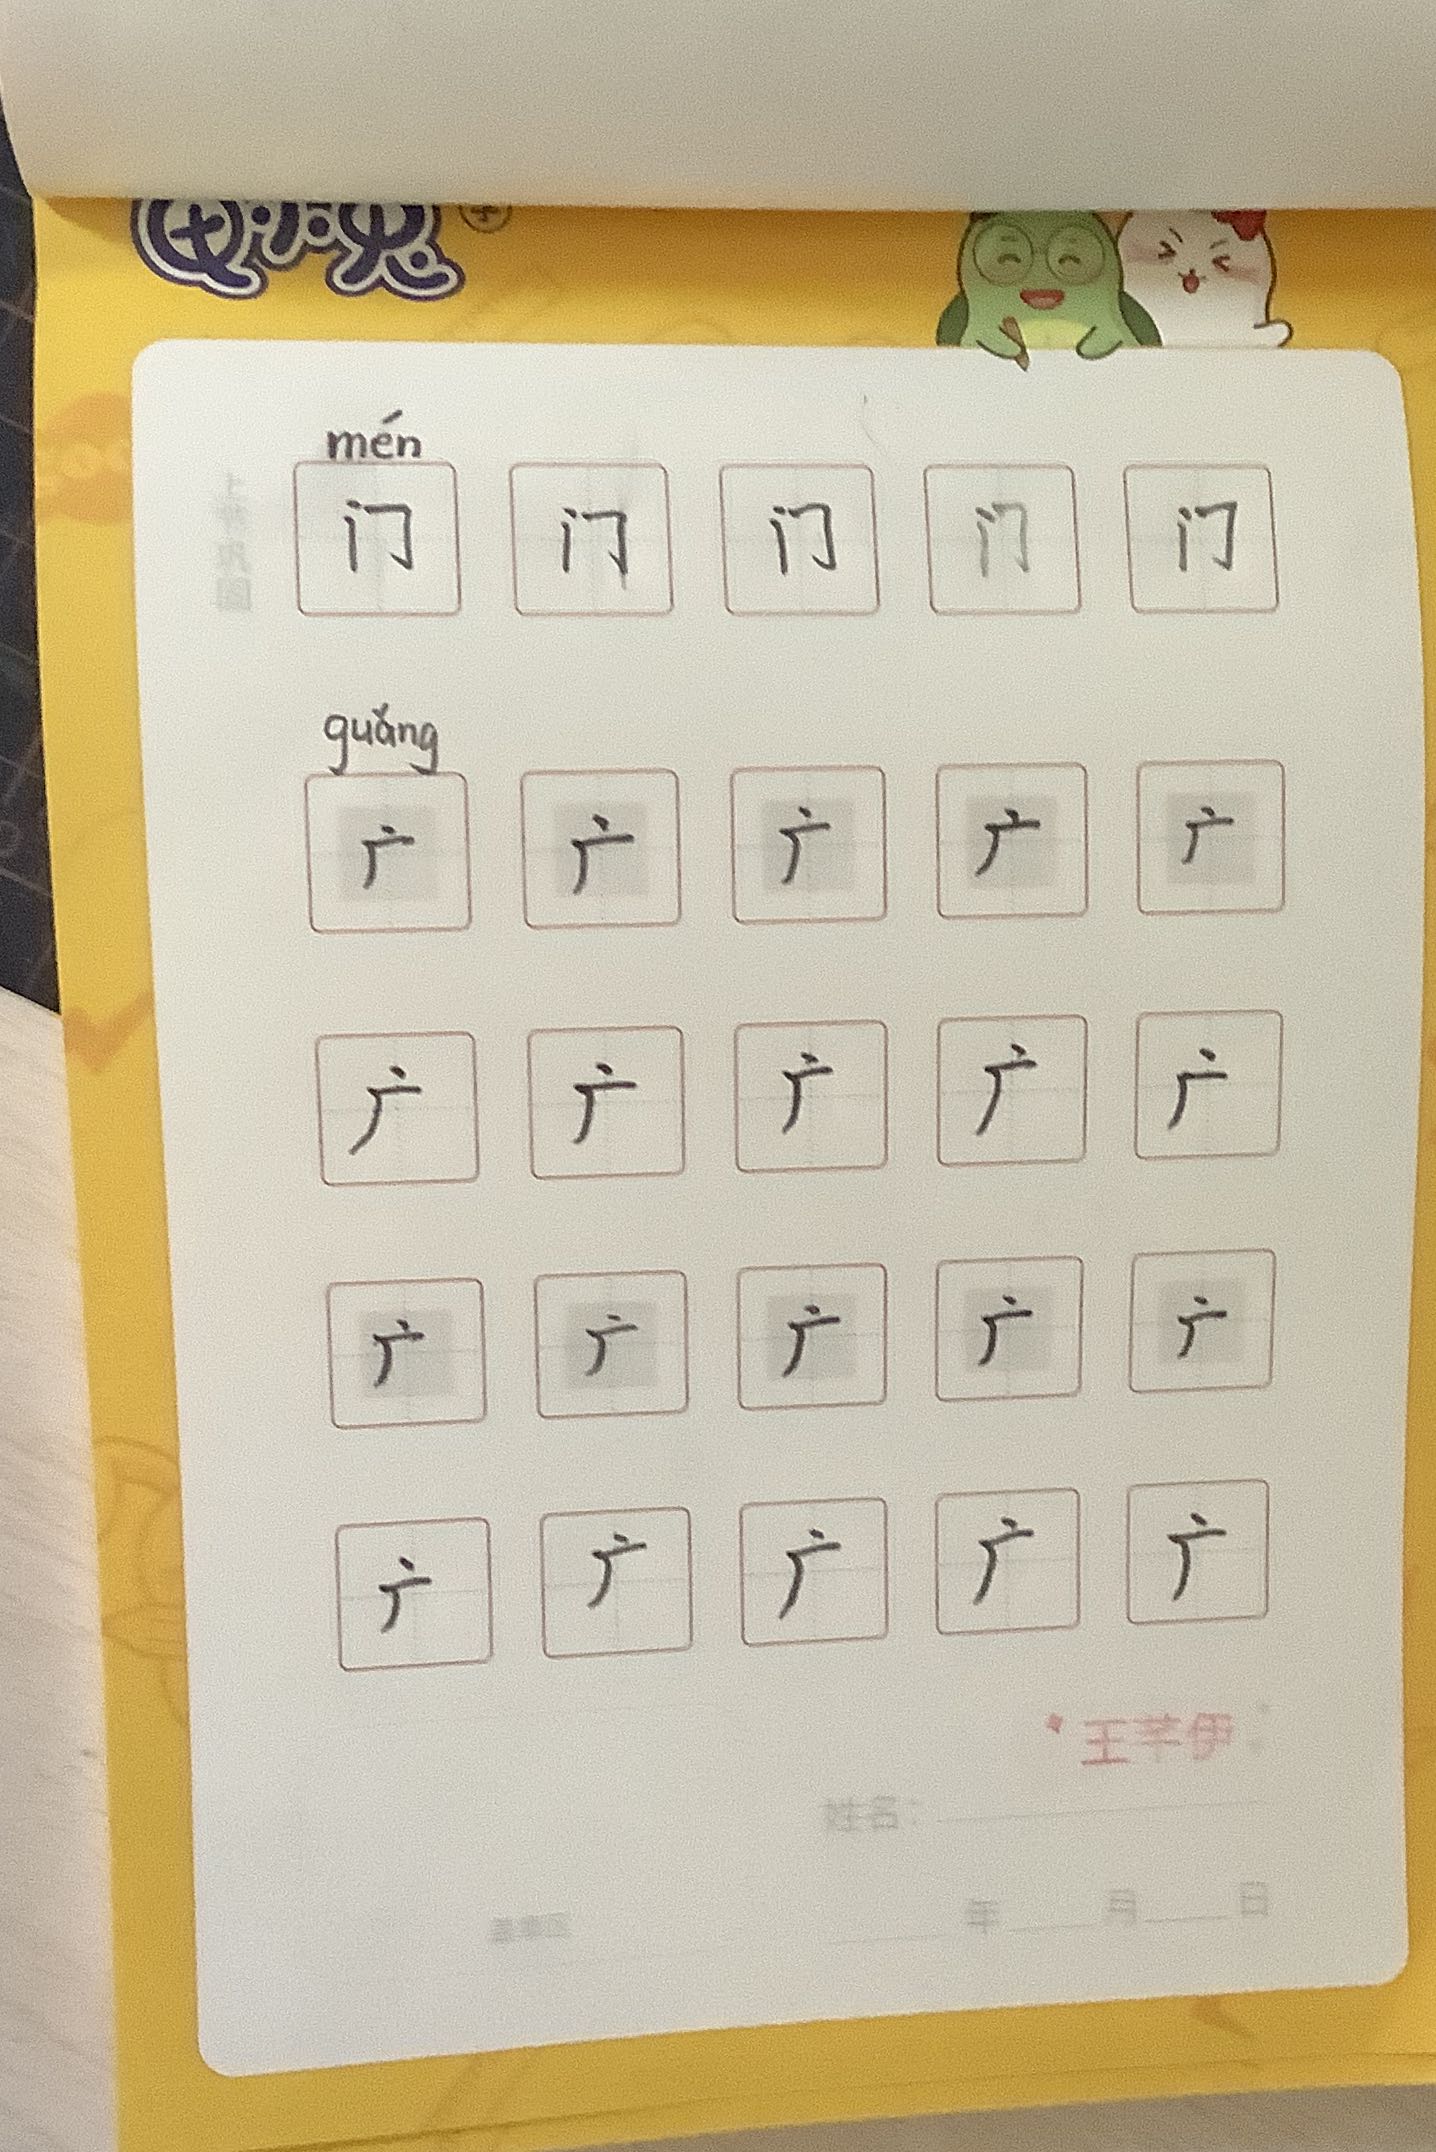 mén
门 门 门 门 门
guǎng
广 广 广 广 广
广 广 广 广 广
广 广 广 广 广
广 广 广 广 广
王芊伊
姓名:
年 月 日